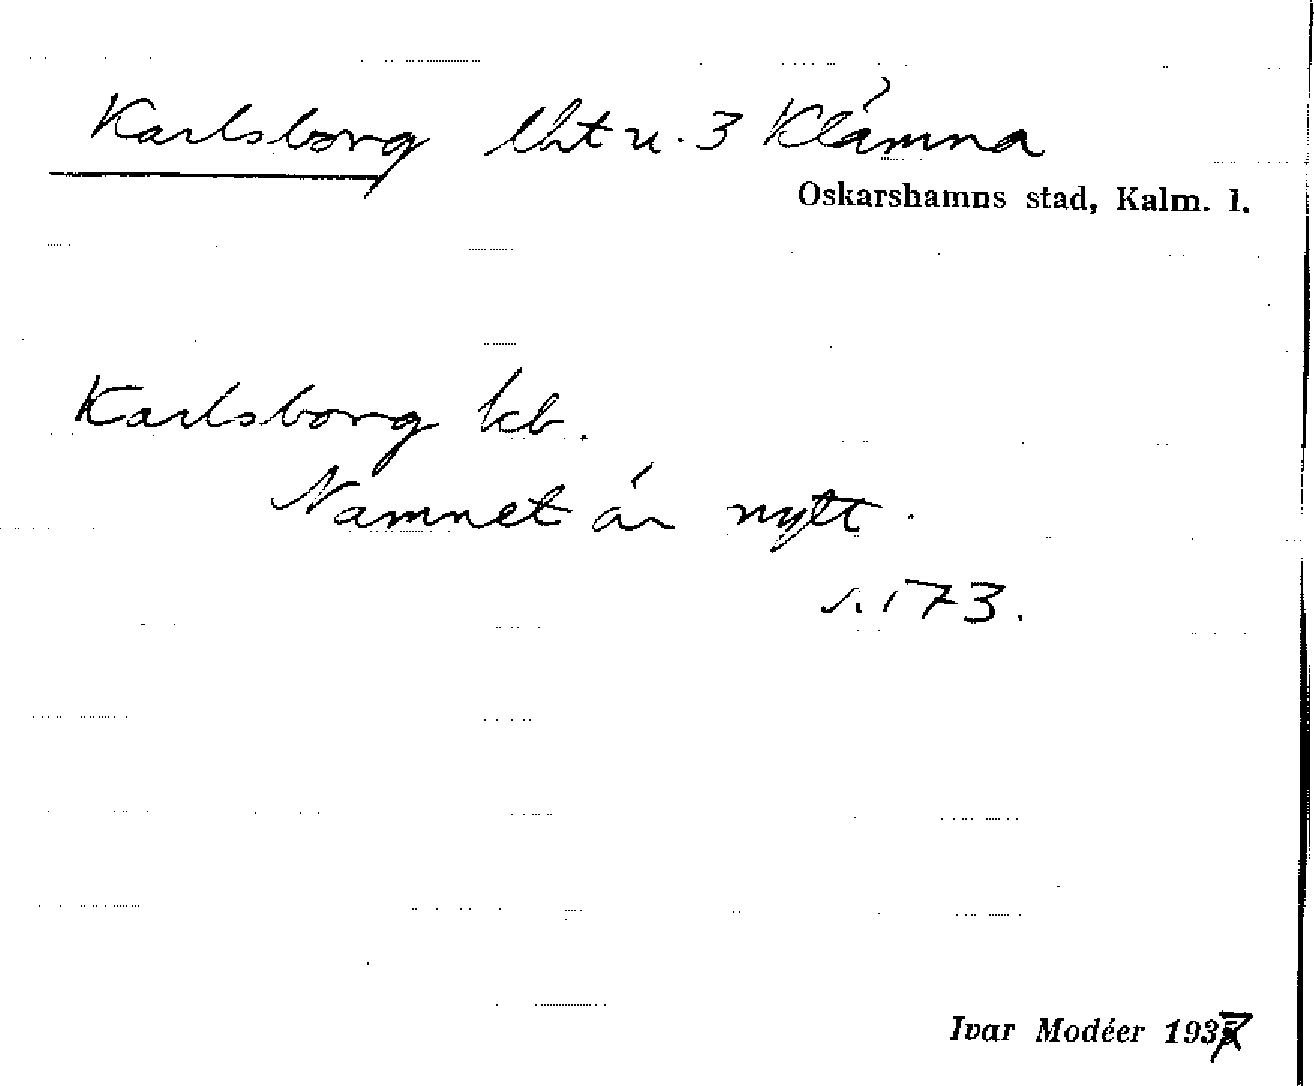 Karlsborg lht u. 3 Klämna
Oskarshamns stad, Kalm. l.
Karlsborg kb.
Namnet är nytt.
s. 173.
Ivar Modéer 1937